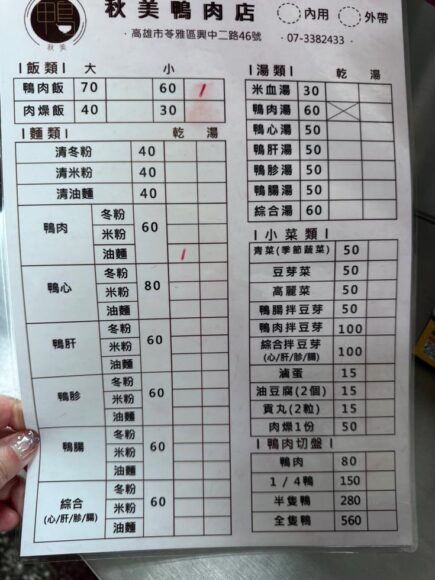 秋美
秋美鴨肉店 內用 外帶
·高雄市苓雅區興中二路46號 ·07-3382433·
飯類 大 小
鴨肉飯 70 60 /
肉燥飯 40 30
麵類 乾 湯
清冬粉 40
清米粉 40
清油麵 40
鴨肉 冬粉 米粉 油麵 60 /
鴨心 冬粉 米粉 油麵 80
鴨肝 冬粉 米粉 油麵 60
鴨胗 冬粉 米粉 油麵 60
鴨腸 冬粉 米粉 油麵 60
綜合 (心/肝/胗/腸) 冬粉 米粉 油麵 60
湯類 乾 湯
米血湯 30
鴨肉湯 60
鴨心湯 50
鴨肝湯 50
鴨胗湯 50
鴨腸湯 50
綜合湯 60
小菜類
青菜(季節蔬菜) 50
豆芽菜 50
高麗菜 50
鴨腸拌豆芽 50
鴨肉拌豆芽 100
綜合拌豆芽 (心/肝/胗/腸) 100
滷蛋 15
油豆腐(2個) 15
貢丸(2粒) 15
肉燥1份 50
鴨肉切盤
鴨肉 80
1/4鴨 150
半隻鴨 280
全隻鴨 560